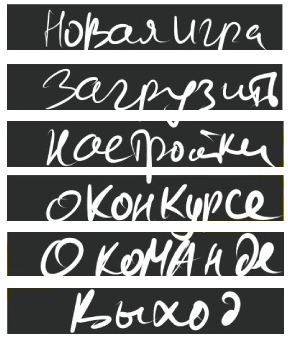 Новая игра
Загрузить
Настройки
О конкурсе
О команде
Выход